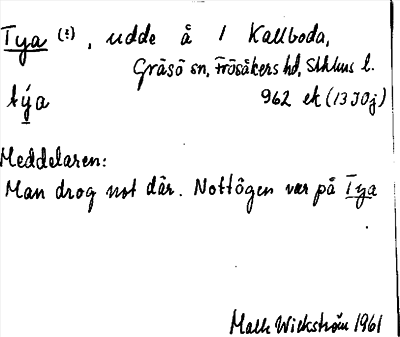 Tya (:), udde å 1 Kallboda,
Gräsö sn, Frösåkers hd, Sthlms l.
týa 962 ek (13I0j)
Meddelaren:
Man drog not där. Nottögen var på Tya
Wickström 1961